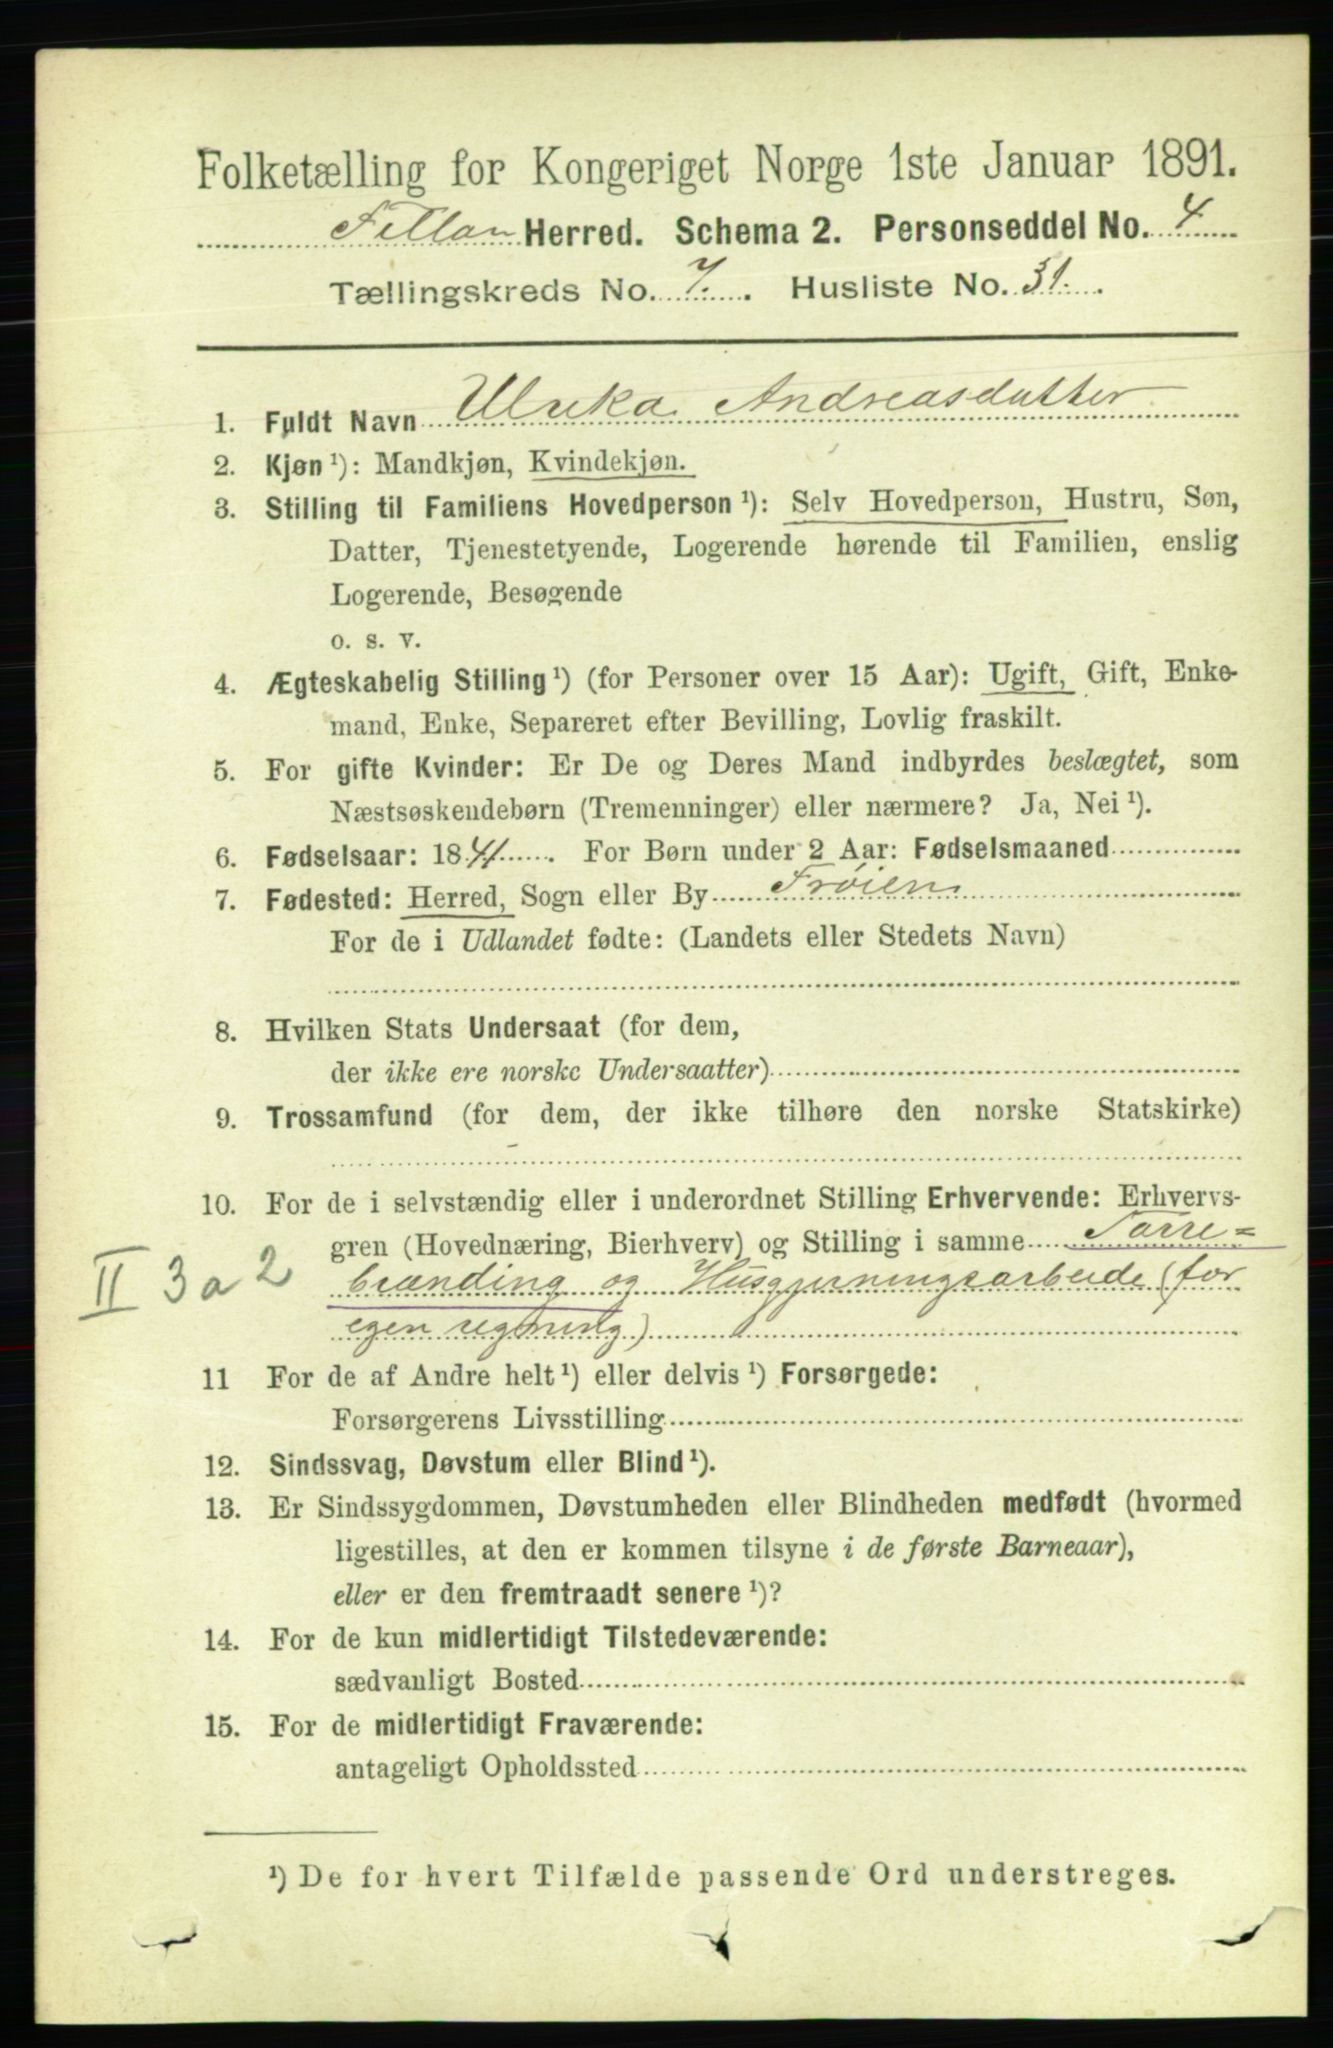 Folketælling for Kongeriget Norge 1ste Januar 1891.
Fillan Herred. Schema 2. Personseddel No. 4
Tællingskreds No. 7. Husliste No. 31.
1. Fuldt Navn Ulrika Andreasdatter
2. Kjøn ¹): Mandkjøn, Kvindekjøn.
3. Stilling til Familiens Hovedperson ¹): Selv Hovedperson, Hustru, Søn,
Datter, Tjenestetyende, Logerende hørende til Familien, enslig
Logerende, Besøgende
o. s. v.
4. Ægteskabelig Stilling ¹) (for Personer over 15 Aar): Ugift, Gift, Enke-
mand, Enke, Separeret efter Bevilling, Lovlig fraskilt.
5. For gifte Kvinder: Er De og Deres Mand indbyrdes beslægtet, som
Næstsøskendebørn (Tremenninger) eller nærmere? Ja, Nei ¹).
6. Fødselsaar: 1841. For Børn under 2 Aar: Fødselsmaaned
7. Fødested: Herred, Sogn eller By Frøien
For de i Udlandet fødte: (Landets eller Stedets Navn)
8. Hvilken Stats Undersaat (for dem,
der ikke ere norske Undersaatter)
9. Trossamfund (for dem, der ikke tilhøre den norske Statskirke)
10. For de i selvstændig eller i underordnet Stilling Erhvervende: Erhvervs-
gren (Hovednæring, Bierhverv) og Stilling i samme Tarre=
II 3a2 brænding og Husgjerningsarbeide (for
egen regning)
11 For de af Andre helt ¹) eller delvis ¹) Forsørgede:
Forsørgerens Livsstilling
12. Sindssvag, Døvstum eller Blind ¹).
13. Er Sindssygdommen, Døvstumheden eller Blindheden medfødt (hvormed
ligestilles, at den er kommen tilsyne i de første Barneaar),
eller er den fremtraadt senere ¹)?
14. For de kun midlertidigt Tilstedeværende:
sædvanligt Bosted
15. For de midlertidigt Fraværende:
antageligt Opholdssted
¹) De for hvert Tilfælde passende Ord understreges.